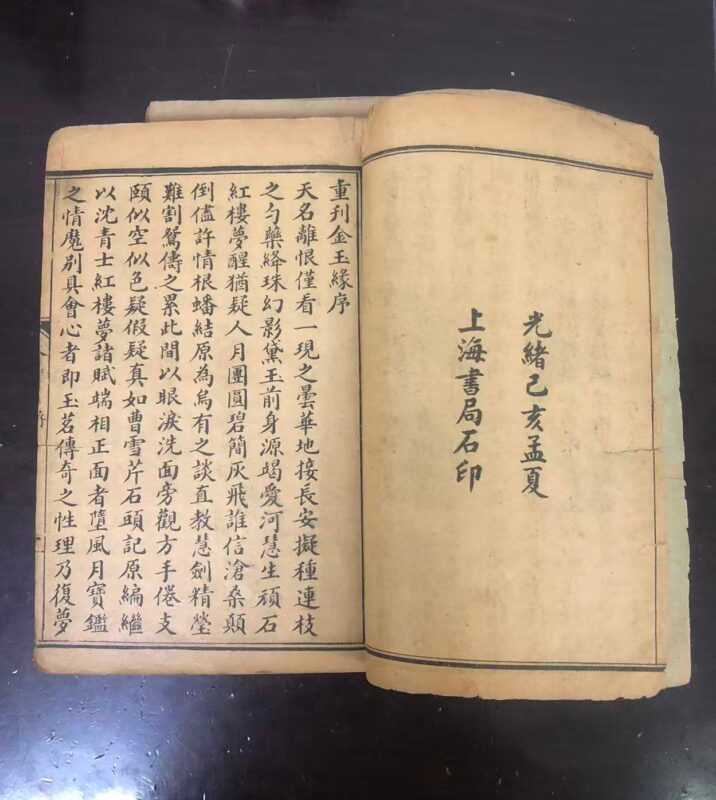 光緒己亥孟夏
上海書局石印
重刊金玉緣序
天名離恨僅看一現之曇華地接長安擬種連枝
之勺藥絳珠幻影黛玉前身源竭愛河慧生頑石
紅樓夢醒猶疑人月團圓碧簡灰飛誰信滄桑顛
倒儘許情根蟠結原為烏有之談直教慧劍精瑩
難割鴛儔之累此間以眼淚洗面旁觀方手倦支
頤似空似色疑假疑真如曹雪芹石頭記原編繼
以沈青士紅樓夢諸賦端相正面者墮風月寶鑑
之情魔別具會心者即玉茗傳奇之性理乃復夢